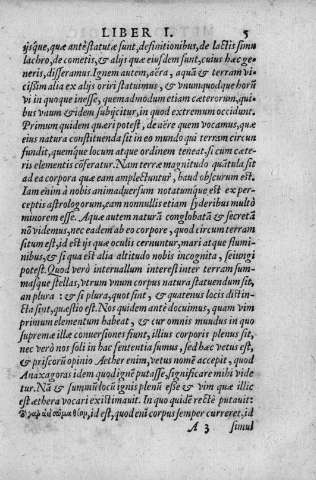 LIBER I. 5
ijsque, quæ antè statutæ sunt, definitionibus, de lactis simu
lachro, de cometis, & alijs quæ eiusdem sunt, cuius hæc ge-
neris, disseramus. Ignem autem, aëra, aquã & terram vi
cissim alia ex alijs oriri statuimus, & vnumquodque horũ
vi in quoque inesse, quemadmodum etiam cæterorum, qui
bus vnum & idem subijcitur, in quod extremum occidunt.
Primum quidem quæri potest, de aëre quem vocamus, quæ
eius natura constituenda sit in eo mundo qui terram circun
fundit, quemque locum atque ordinem teneat, si cum cæte-
ris elementis cõferatur. Nam terræ magnitudo quãtula sit
ad ea corpora quæ eam amplectuntur, haud obscurum est.
Iam enim à nobis animaduersum notatumque est ex per-
ceptis astrologorum, eam nonnullis etiam syderibus multò
minorem esse. Aquæ autem naturã conglobatã & secretã
nõ videmus, nec eadem ab eo corpore, quod circum terram
situm est, id est ijs quæ oculis cernuntur, mari atque flumi-
nibus, & si qua est alia altitudo nobis incognita, seiungi
potest. Quod verò interuallum interest inter terram sum-
masque stellas, vtrum vnum corpus natura statuendum sit,
an plura: & si plura, quot sint, & quatenus locis distin-
cta sint, quæstio est. Nos quidem antè docuimus, quam vim
primum elementum habeat, & cur omnis mundus in quo
supremæ illæ conuersiones fiunt, illius corporis plenus sit,
nec verò nos soli in hac sententia sumus, sed hæc vetus est,
& priscorũ opinio Aether enim, vetus nomẽ accepit, quod
Anaxagoras idem quod ignẽ putasse, significare mihi vide
tur. Nã & summũ locũ ignis plenũ esse & vim quæ illic
est æthera vocari existimauit. In quo quidẽ rectè putauit:
id est, quod eni corpus semper curreret, id
A 3 simul